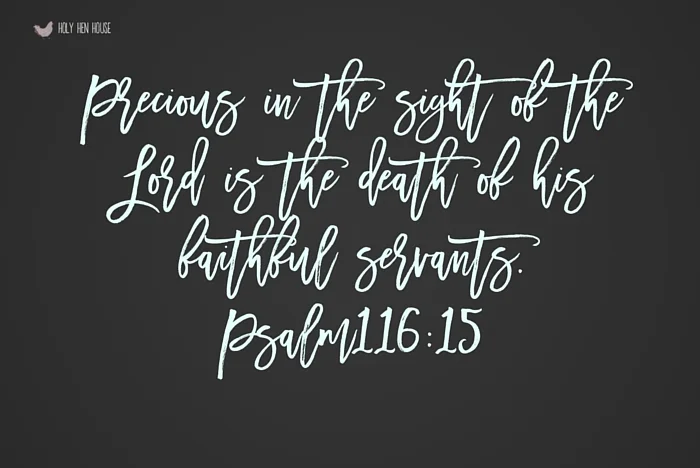 HOLY HEN HOUSE
Precious in the sight of the
Lord is the death of his
faithful servants.
Psalm116:15